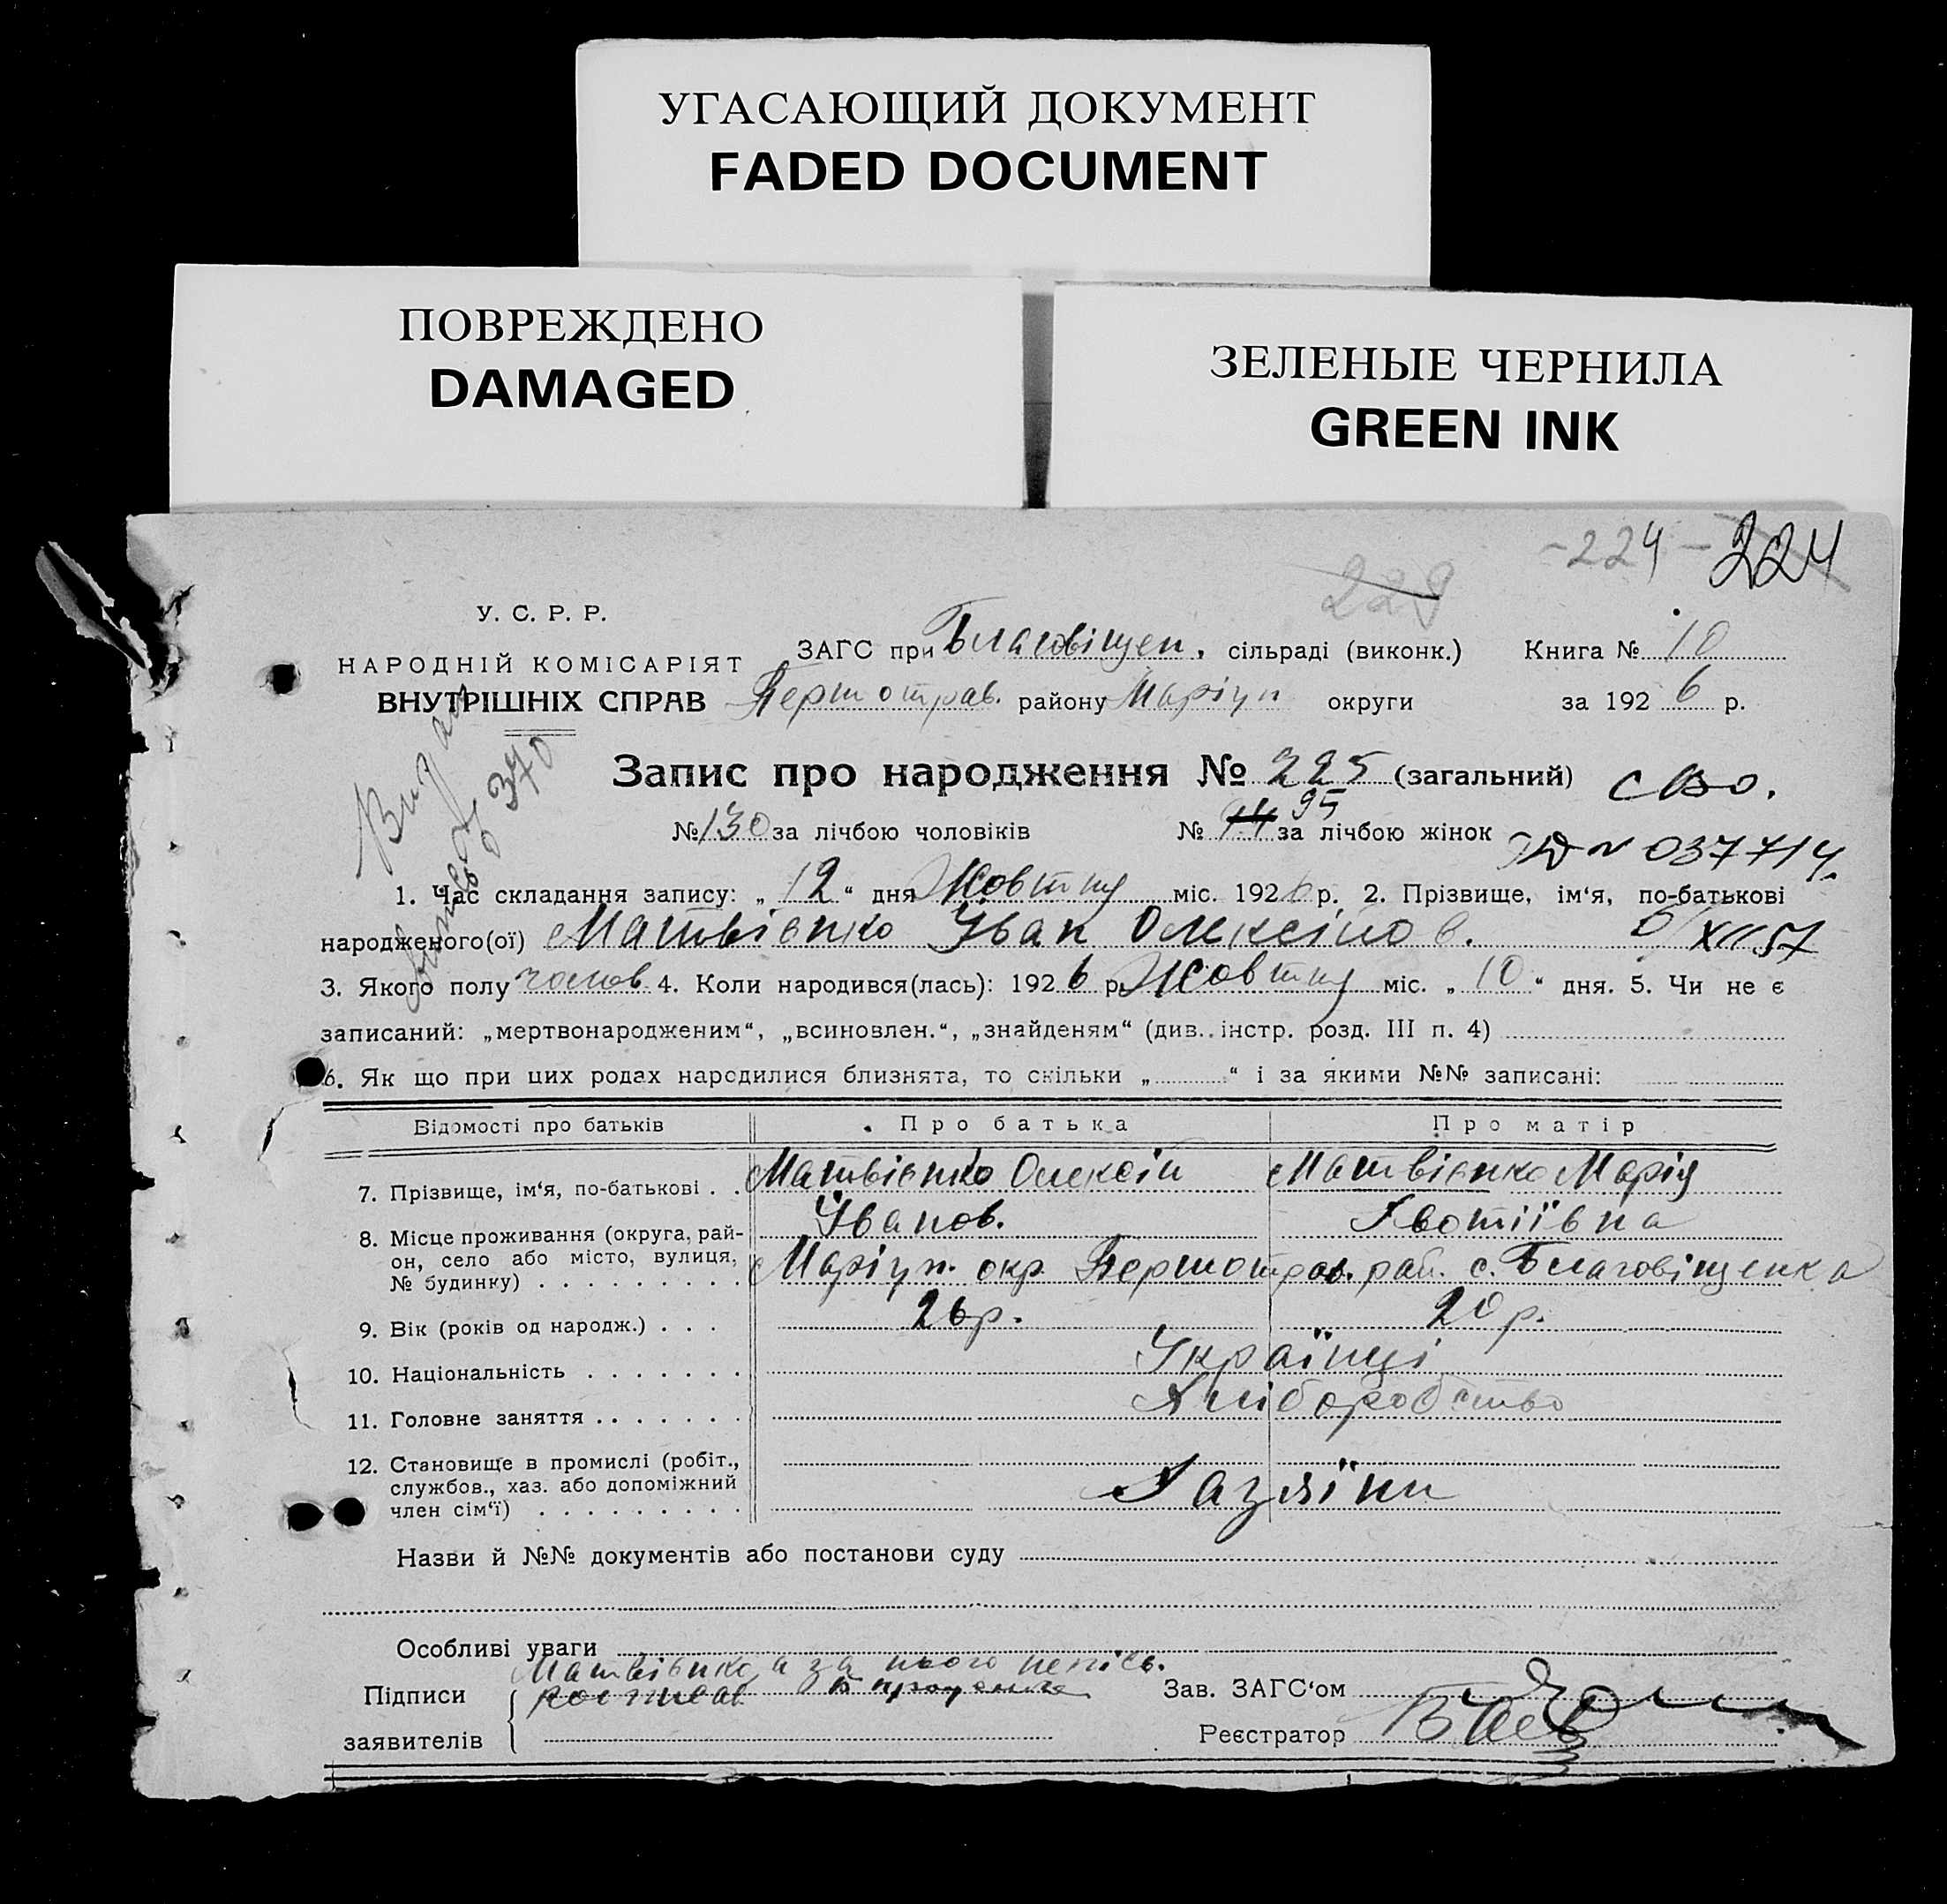 УГАСАЮЩИЙ ДОКУМЕНТ
FADED DOCUMENT
ПОВРЕЖДЕНО
DAMAGED
ЗЕЛЕНЫЕ ЧЕРНИЛА
GREEN INK
-224- 224
229
У. С. Р. Р.
НАРОДНІЙ КОМІСАРІЯТ
ВНУТРІШНІХ СПРАВ
ЗАГС при Благовіщен. сільраді (виконк.) Книга № 10
Першотрав. району Маріуп округи за 1926 р.
370
Запис про народження № 225 (загальний) сво.
№ 130 за лічбою чоловіків № 95 за лічбою жінок
№ 037714.
1. Час складання запису: „ 12 “ дня Жовтня міс. 1926 р. 2. Прізвище, ім‘я, по-батькові
народженого(ої) Матвієнко Іван Олексійов. 6/XII 57
3. Якого полу чолов. 4. Коли народився(лась): 1926 р. Жовтня міс. „ 10 “ дня. 5. Чи не є
записаний: „мертвонародженим“, „всиновлен.“, „знайденям“ (див. інстр. розд. III п. 4)
6. Як що при цих родах народилися близнята, то скільки „ “ і за якими №№ записані:
Відомості про батьків Про батька Про матір
7. Прізвище, ім‘я, по-батькові . . Матвієнко Олексій Матвієнко Марія
Іванов.
8. Місце проживання (округа, рай-
он, село або місто, вулиця,
№ будинку) . . . . . . . . . Маріуп. окр. Першотрав. рай. с. Благовіщенка
9. Вік (років од народж.) . . . 26 р. 20 р.
10. Національність . . . . . . . Українці
11. Головне заняття . . . . . . . Хліборобство
12. Становище в промислі (робіт.,
службов., хаз. або допоміжний
член сім‘ї) . . . . . . . . . Хазяїни
Назви й №№ документів або постанови суду
Особливі уваги
Матвієнко, а за нього непісь.
Підписи
заявителів
росписав
Зав. ЗАГС‘ом
Реєстратор